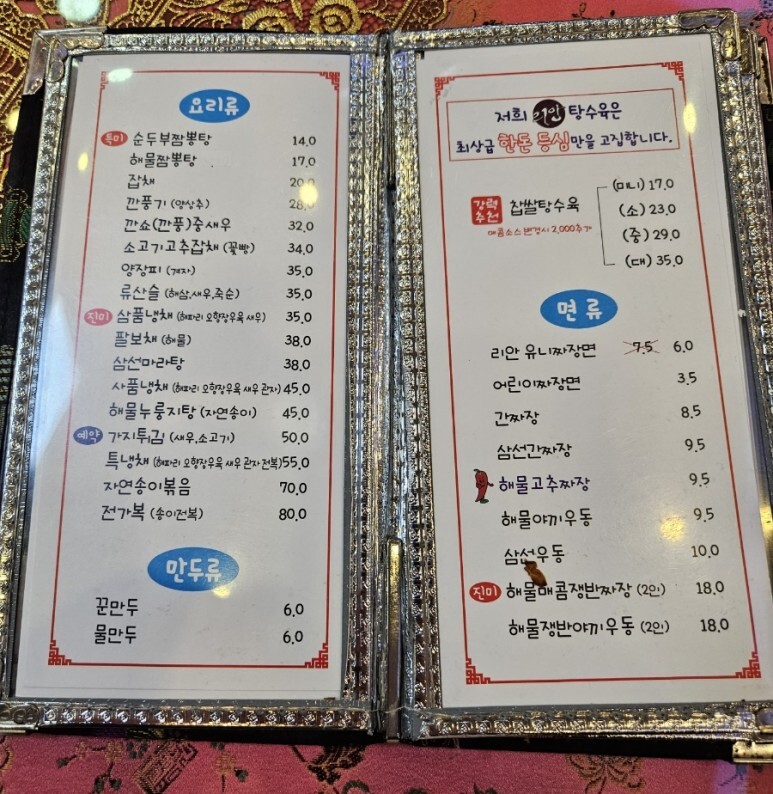 요리류
특미 순두부짬뽕탕 14.0
해물짬뽕탕 17.0
잡채 20.0
깐풍기 (양상추) 28.0
깐쇼(깐풍)중새우 32.0
소고기고추잡채 (꽃빵) 34.0
양장피 (겨자) 35.0
류산슬 (해삼,새우,죽순) 35.0
진미 삼품냉채 (해파리 오향장우육 새우) 35.0
팔보채 (해물) 38.0
삼선마라탕 38.0
사품냉채 (해파리 오향장우육 새우 관자) 45.0
해물누룽지탕 (자연송이) 45.0
예약 가지튀김 (새우,소고기) 50.0
특냉채 (해파리 오향장우육 새우 관자 전복) 55.0
자연송이볶음 70.0
전가복 (송이전복) 80.0
만두류
꾼만두 6.0
물만두 6.0
저희 리안 탕수육은
최상급 한돈 등심만을 고집합니다.
강력추천 찹쌀탕수육
(미니) 17.0
(소) 23.0
(중) 29.0
(대) 35.0
매콤소스변경시 2,000추가
면류
리안 유니짜장면 7.5 6.0
어린이짜장면 3.5
간짜장 8.5
삼선간짜장 9.5
해물고추짜장 9.5
해물야끼우동 9.5
삼선우동 10.0
진미 해물매콤쟁반짜장 (2인) 18.0
해물쟁반야끼우동 (2인) 18.0